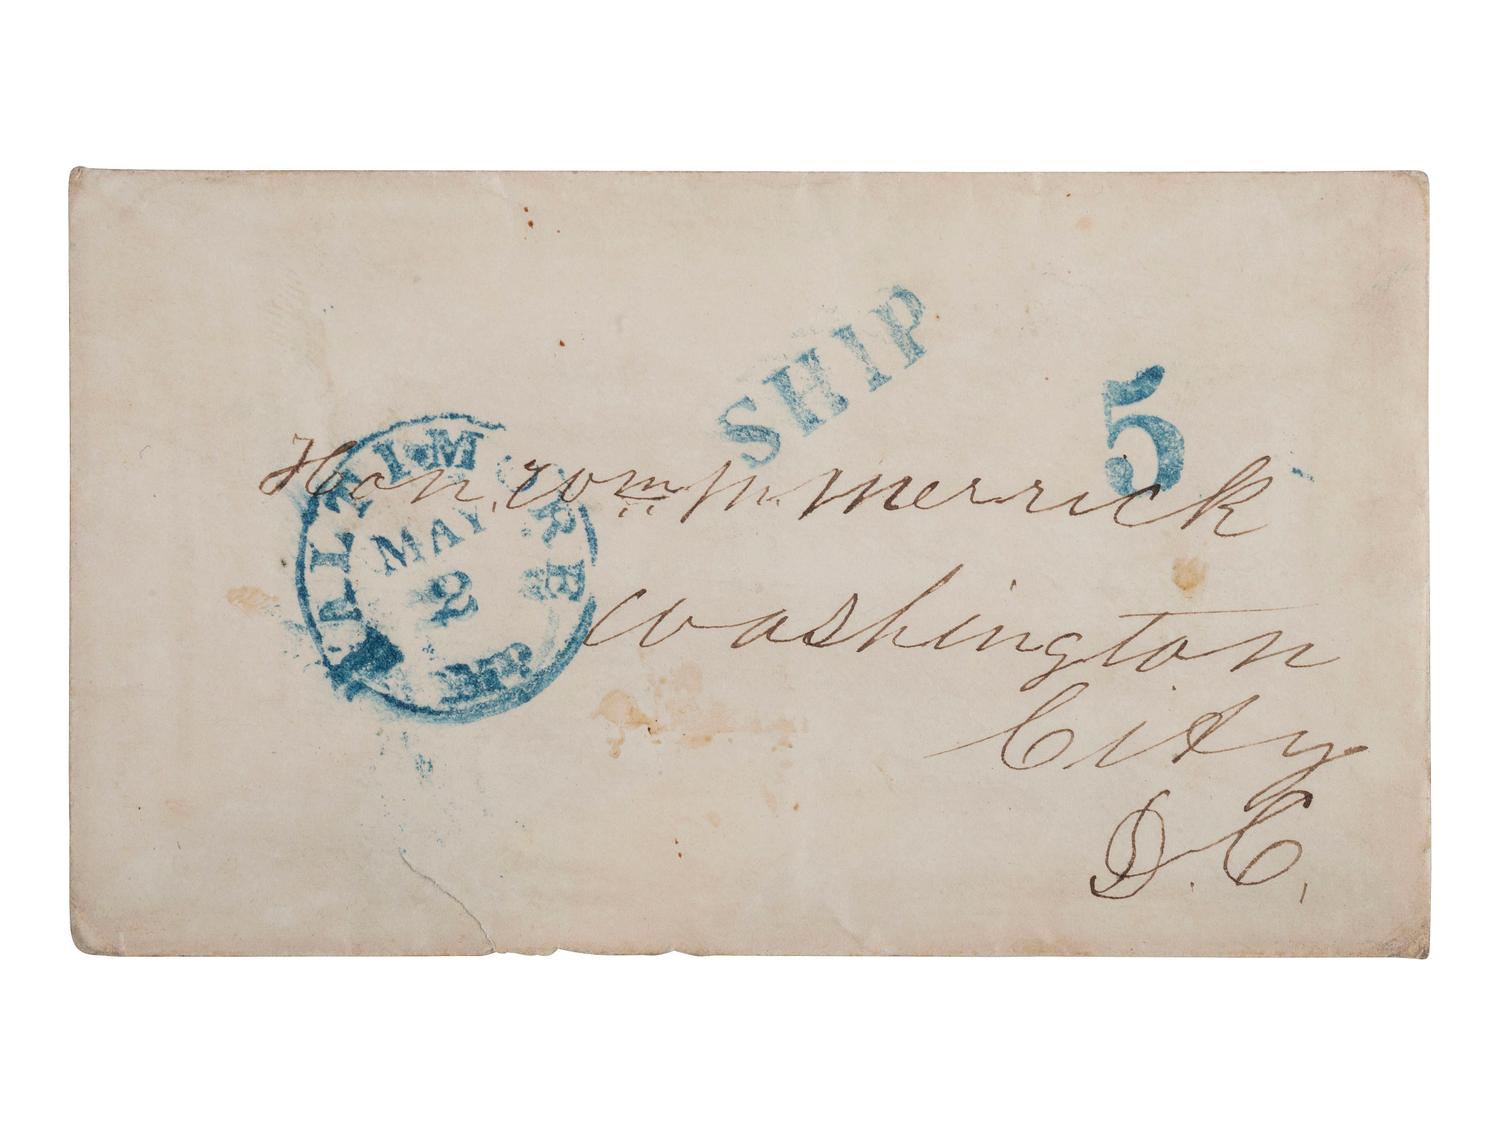 SHIP
5
BALTIMORE
MAY
2
Md
Hon. Wm M. Merrick
Washington
City
D.C.